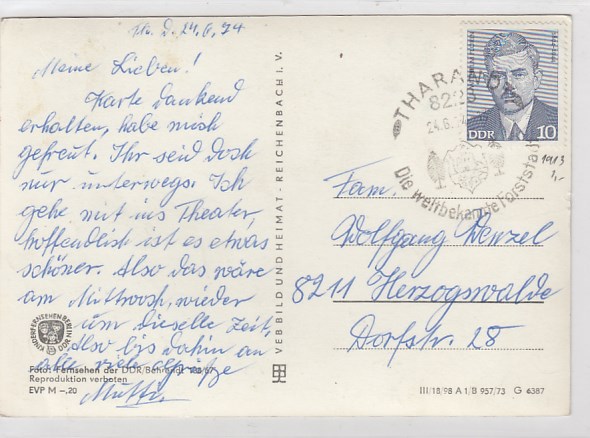 Th. d. 24.6.74
Meine Lieben!
Karte dankend
erhalten, habe mich
gefreut. Ihr seid doch
nur unterwegs. Ich
gehe mit ins Theater,
hoffendlich ist es etwas
schöner. Also das wäre
am Mittwoch, wieder
um dieselbe Zeit,
Also bis dahin an
alle viele Grüße
Mutti
KINDERFERNSEHEN BERLIN
DDR
Foto: Fernsehen der DDR/Behrendt
Reproduktion verboten
EVP M –,20
VEB BILD UND HEIMAT · REICHENBACH I. V.
THARANDT
24.6.74
Die weltbekannte Forststadt
DDR 10
1913
1,-
Fam.
Wolfgang Wenzel
8211 Herzogswalde
Dorfstr. 28
III/18/98 A 1/B 957/73 G 6387